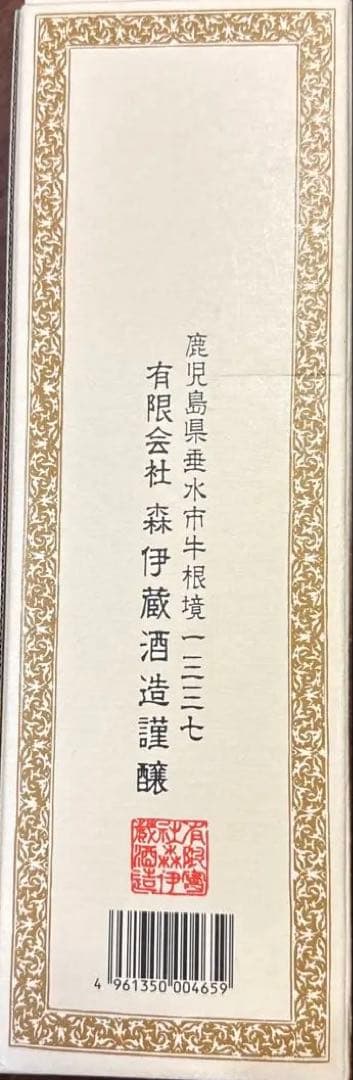 鹿児島県垂水市牛根境一三三七
有限会社 森伊蔵酒造謹醸
有限會
社森伊
蔵酒造
4 961350 004659